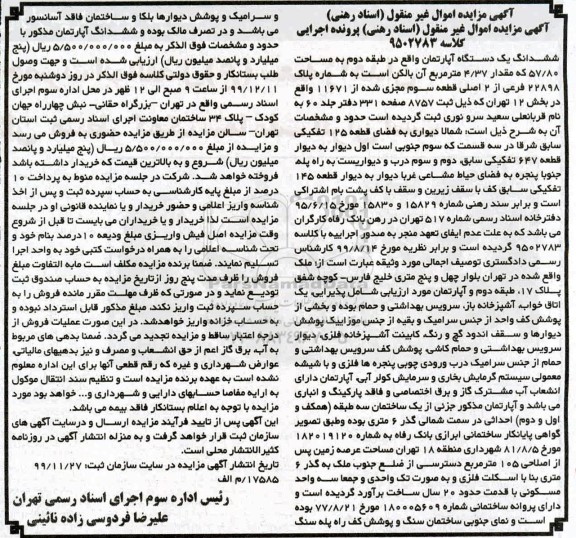 آگهی مزایده اموال غیر منقول (اسناد رهنی)
آگهی مزایده اموال غیر منقول (اسناد رهنی) پرونده اجرایی
کلاسه ۹۵۰۲۷۸۳
ششدانگ یک دستگاه آپارتمان واقع در طبقه دوم به مساحت
۵۷/۸۰ که مقدار ۴/۳۷ مترمربع آن بالکن است به شماره پلاک
۲۲۸۹۸ فرعی از ۲ اصلی قطعه سوم مجزی شده از ۱۱۶۷۱ واقع
در بخش ۱۲ تهران که ذیل ثبت ۸۷۵۷ صفحه ۳۳۱ دفتر جلد ۶۰ به
نام قربانعلی سعید سرو نوری ثبت گردیده است حدود و مشخصات
آن به شرح ذیل است: شمالا دیواری به فضای قطعه ۱۲۵ تفکیکی
سابق شرقا در سه قسمت که سوم جنوبی است اول دیوار به دیوار
قطعه ۶۴۷ تفکیکی سابق، دوم و سوم درب و دیواریست به راه پله
جنوبا پنجره به فضای حیاط مشاعی غربا دیوار به دیوار قطعه ۱۴۵
تفکیکی سابق کف با سقف زیرین و سقف با کف پشت بام اشتراکی
است و برابر سند رهنی شماره ۱۵۸۲۹ و ۱۵۸۳۰ مورخ ۹۵/۶/۱۵
دفترخانه اسناد رسمی شماره ۵۱۷ تهران در رهن بانک رفاه کارگران
می باشد که به علت عدم ایفای تعهد منجر به صدور اجراییه با کلاسه
۹۵۰۲۷۸۳ گردیده است و برابر نظریه مورخ ۹۹/۸/۱۴ کارشناس
رسمی دادگستری توصیف اجمالی مورد وثیقه عبارت است از: ملک
واقع شده در تهران بلوار چهل و پنج متری خلیج فارس- کوچه شفق
پلاک ۱۷، طبقه دوم و آپارتمان مورد ارزیابی شامل پذیرایی، یک
اتاق خواب، آشپزخانه باز، سرویس بهداشتی و حمام بوده و بخشی از
پوشش کف واحد از جنس سرامیک و بقیه از جنس موزاییک پوشش
دیوارها و سقف اندود گچ و رنگ، کابینت آشپزخانه فلزی، دیوار
سرویس بهداشتی و حمام کاشی، پوشش کف سرویس بهداشتی و
حمام از جنس سرامیک درب ورودی چوبی پنجره ها فلزی و با شیشه
معمولی سیستم گرمایش بخاری و سرمایش کولر آبی، آپارتمان دارای
انشعاب آب مشترک گاز و برق اختصاصی و فاقد پارکینگ و انباری
می باشد و آپارتمان مذکور جزئی از یک ساختمان سه طبقه (همکف و
اول و دوم) احداثی در سمت شمالی گذر ۶ متری بوده وطبق تصویر
گواهی پایانکار ساختمانی ابرازی بانک رفاه به شماره ۱۸۲۰۱۹۱۲۰
مورخ ۸۱/۸/۵ شهرداری منطقه ۱۸ تهران مساحت عرصه زمین پس
از اصلاحی ۱۰۵ مترمربع دسترسی از ضلع جنوب ملک به گذر ۶
متری بنا با اسکلت فلزی و به صورت تک واحدی و جمعا سه واحد
مسکونی با قدمت حدود ۲۰ سال ساخت برآورد گردیده است و
دارای پروانه ساختمانی شماره ۱۸۰۰۰۵۶۰۹ مورخ ۷۷/۸/۲۱ بوده
است و نمای جنوبی ساختمان سنگ و پوشش کف راه پله سنگ
و سرامیک و پوشش دیوارها بلکا و ساختمان فاقد آسانسور
می باشد و در تصرف مالک بوده و ششدانگ آپارتمان مذکور با
حدود و مشخصات فوق الذکر به مبلغ ۵/۵۰۰/۰۰۰/۰۰۰ ریال (پنج
میلیارد و پانصد میلیون ریال) ارزیابی شده است و جهت وصول
طلب بستانکار و حقوق دولتی کلاسه فوق الذکر در روز دوشنبه مورخ
۹۹/۱۲/۱۱ از ساعت ۹ صبح الی ۱۲ ظهر در محل اداره سوم اجرای
اسناد رسمی واقع در تهران –بزرگراه حقانی- نبش چهارراه جهان
کودک – پلاک ۳۴ ساختمان معاونت اجرای اسناد رسمی ثبت استان
تهران- سالن مزایده از طریق مزایده حضوری به فروش می رسد
و مزایده از مبلغ ۵/۵۰۰/۰۰۰/۰۰۰ ریال (پنج میلیارد و پانصد
میلیون ریال) شروع و به بالاترین قیمت که خریدار داشته باشد
فروخته خواهد شد. شرکت در جلسه مزایده منوط به پرداخت ۱۰
درصد از مبلغ پایه کارشناسی به حساب سپرده ثبت و پس از اخذ
شناسه واریز اعلامی و حضور خریدار و یا نماینده قانونی او در جلسه
مزایده است لذا خریدار و یا خریداران می بایست تا قبل از شروع
وقت مزایده اصل فیش واریزی مبلغ ودیعه ۱۰ درصد بنام خود و
تحت شناسه اعلامی را به همراه درخواست کتبی خود به واحد اجرا
تسلیم نمایند. ضمنا برنده مزایده مکلف است مابه التفاوت مبلغ
فروش را ظرف مدت پنج روز ازتاریخ مزایده به حساب صندوق ثبت
تودیع نماید و در صورتی که ظرف مهلت مقرر مانده فروش را به
حساب سپرده ثبت واریز نکند، مبلغ مذکور قابل استرداد نبوده و
به حساب خزانه واریز خواهدشد. در این صورت عملیات فروش از
درجه اعتبار ساقط و مزایده تجدید می گردد. ضمنا بدهی های مربوط
به آب، برق گاز اعم از حق انشعاب و مصرف و نیز بدهیهای مالیاتی،
عوارض شهرداری و غیره که رقم قطعی آنها برای این اداره معلوم
نشده است به عهده برنده مزایده است و تنظیم سند انتقال موکول
به ارایه مفاصا حسابهای دارایی و شهرداری و... خواهد بود مورد
مزایده با توجه به اعلام بستانکار فاقد بیمه می باشد.
این آگهی پس از تایید فرآیند مزایده ارسال و درسایت آگهی های
سازمان ثبت قرار خواهد گرفت و به منزله انتشار آگهی در روزنامه
کثیرالانتشار محلی است.
تاریخ انتشار آگهی مزایده در سایت سازمان ثبت: ۹۹/۱۱/۲۷
۱۷۵۸۵/م الف
رئیس اداره سوم اجرای اسناد رسمی تهران
علیرضا فردوسی زاده نائینی